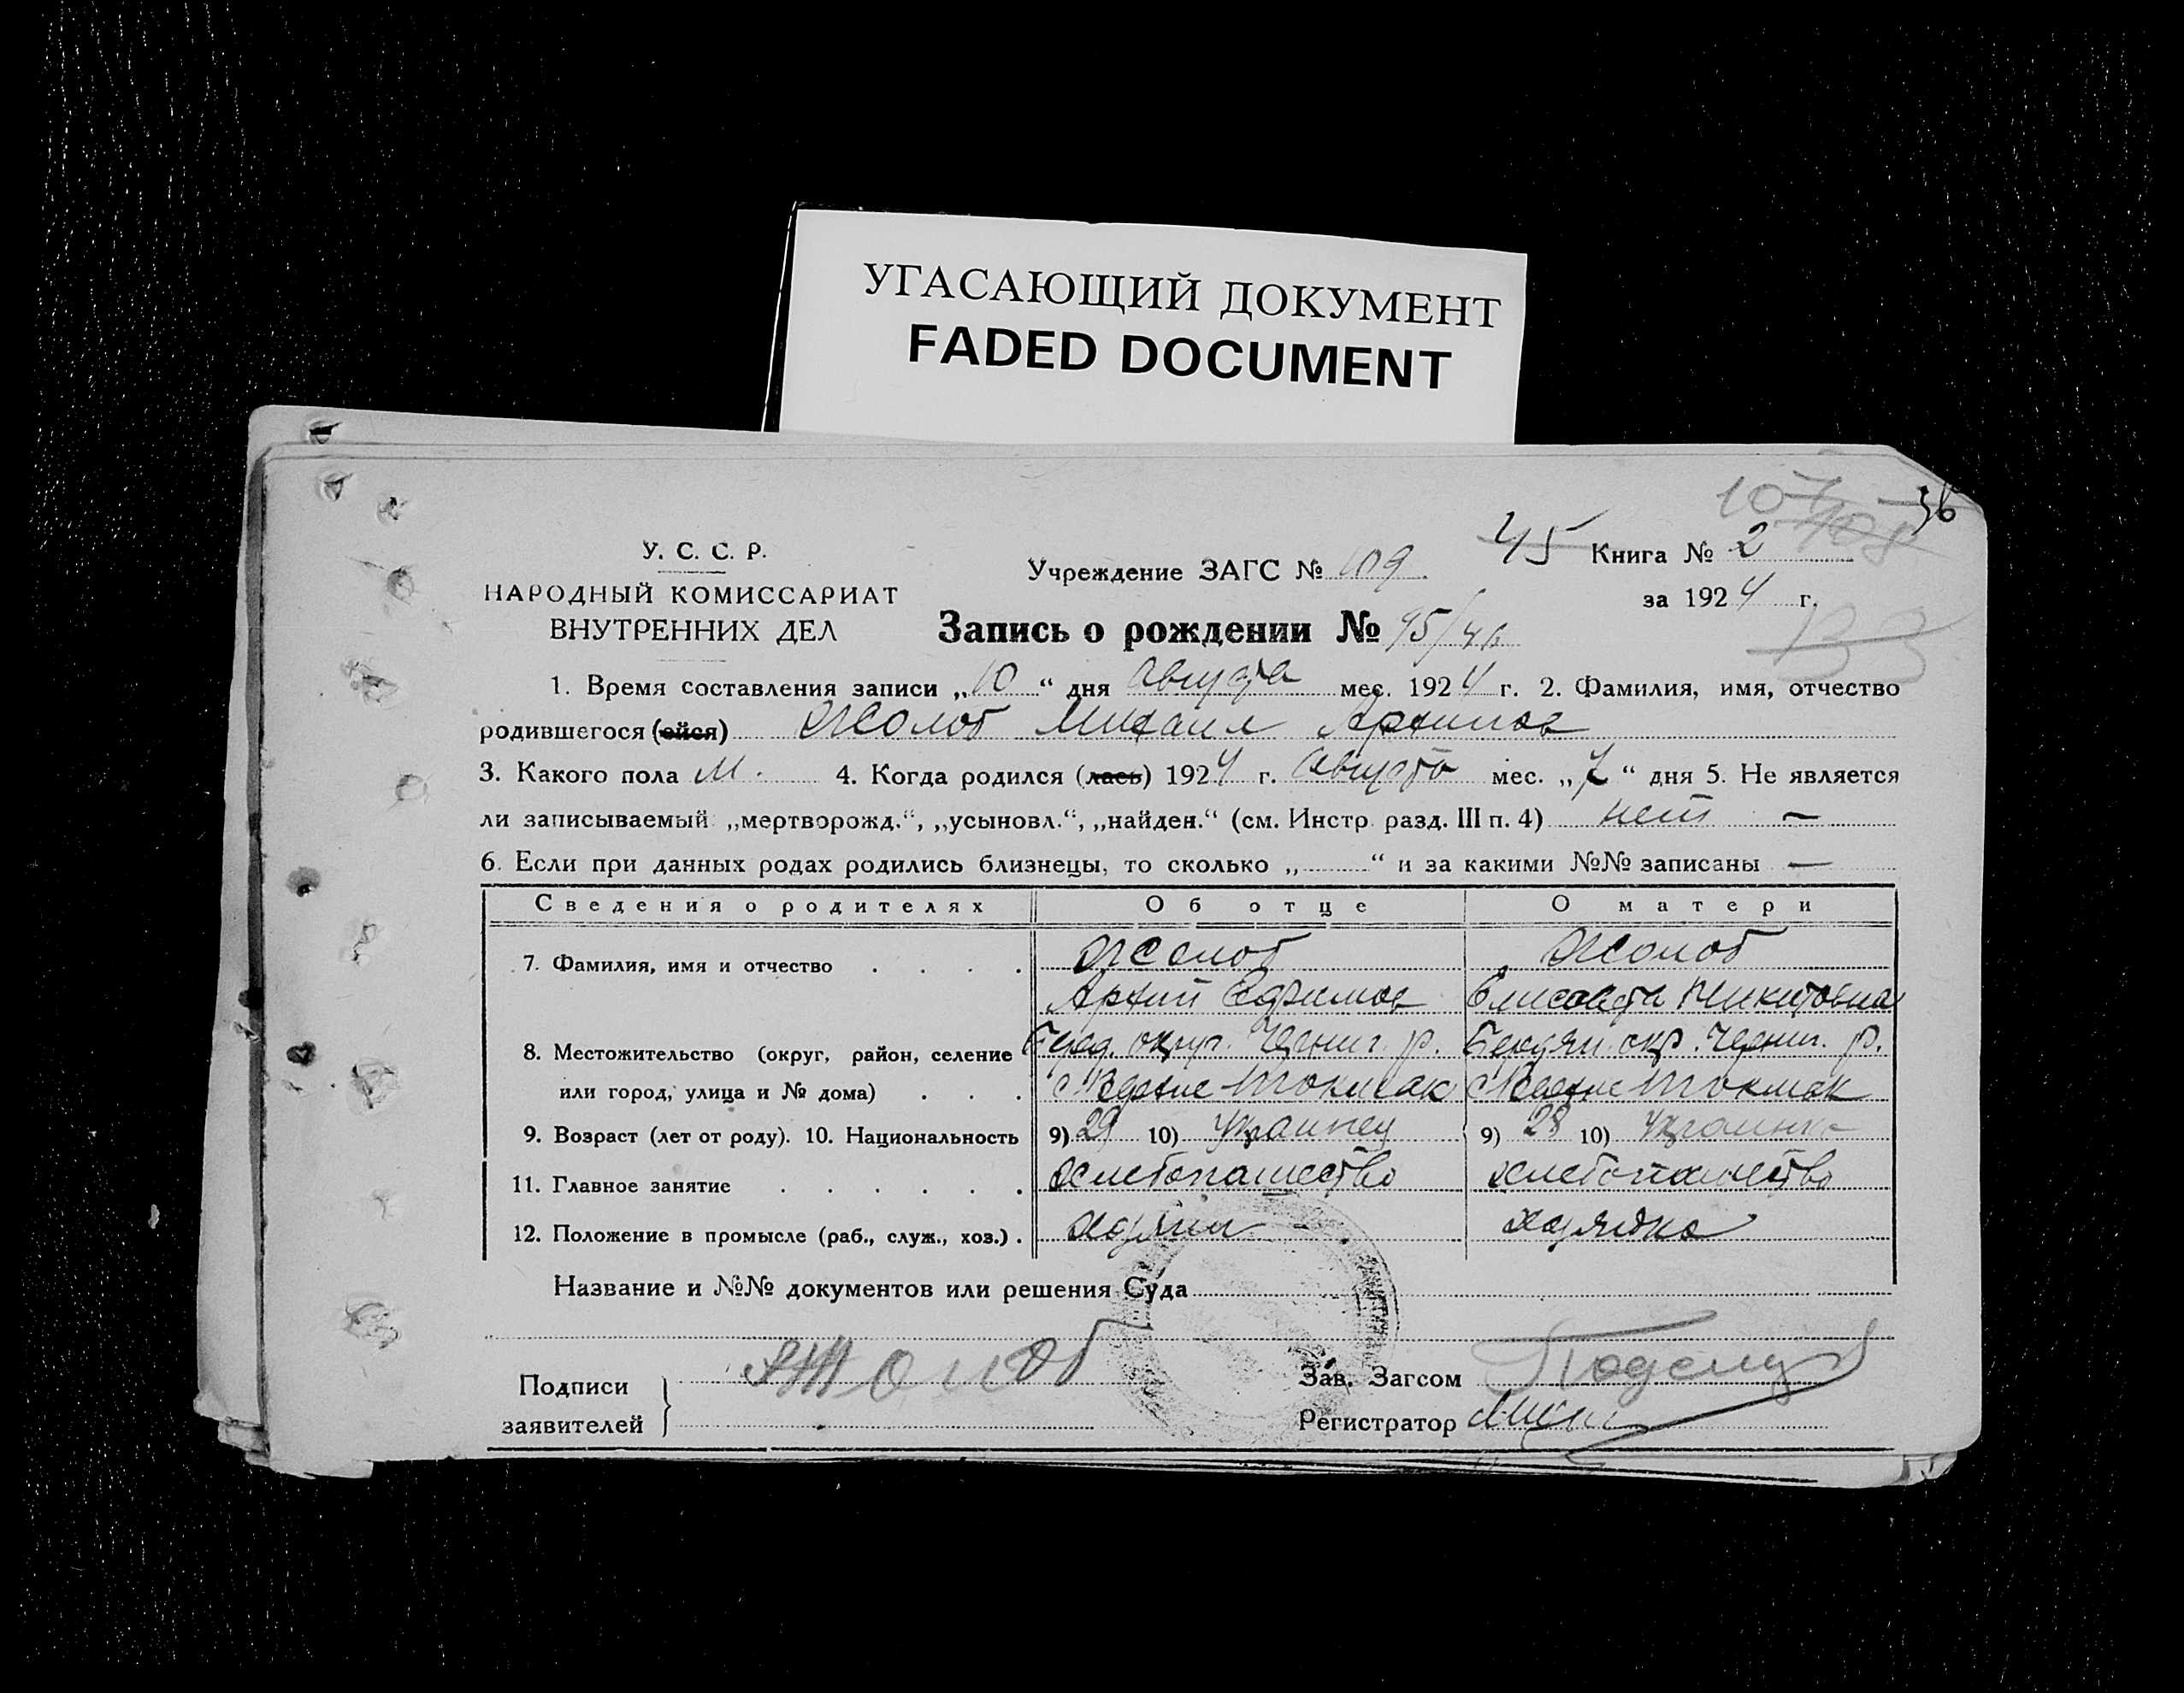 УГАСАЮЩИЙ ДОКУМЕНТ
FADED DOCUMENT
107 108 36
У. С. С. Р.
НАРОДНЫЙ КОМИССАРИАТ
ВНУТРЕННИХ ДЕЛ
Учреждение ЗАГС № 109
45 Книга № 2
за 1924 г.
Запись о рождении № 95/46
133
1. Время составления записи „10“ дня Августа мес. 1924 г. 2. Фамилия, имя, отчество
родившегося (ейся) Жолоб Михаил Архипов
3. Какого пола М. 4. Когда родился (лась) 1924 г. Августа мес. „7“ дня 5. Не является
ли записываемый „мертворожд.“, „усыновл.“, „найден.“ (см. Инстр. разд. III п. 4) нет —
6. Если при данных родах родились близнецы, то сколько „ “ и за какими №№ записаны —
Сведения о родителях Об отце О матери
7. Фамилия, имя и отчество Жолоб Жолоб
Архип Ефимов Елисавета Никитовна
8. Местожительство (округ, район, селение Берд. округ. Черниг. р. Бердян. окр. Черниг. р.
или город, улица и № дома) с Верхне Токмак с Верхне Токмак
9. Возраст (лет от роду). 10. Национальность 9) 29 10) Украинец 9) 28 10) Украинка
11. Главное занятие хлебопашество хлебопашество
12. Положение в промысле (раб., служ., хоз.) хозяин хозяйка
Название и №№ документов или решения Суда
Подписи заявителей Жолоб
Зав. Загсом
Регистратор